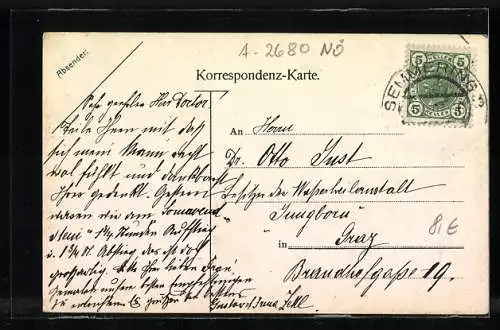 A-2680 NÖ
Absender:
Korrespondenz-Karte.
5 HELLER 5
5 HELLER 5
SEMMERING
Sehr geehrter Herr Doctor!
Teile Ihnen mit daß
sich mein Mann recht
wol fühlt und dankbarst
Ihrer gedenkt. Gestern
waren wir am Sonnwend
stein 1¾ Stunden Aufstieg
u. 1¾ St. Abstieg das ist doch
großartig. Bitte Ihrer lieben Frau
Gemalin unsere besten Empfehlungen
zu entrichten Es grüßen bestens
Gustav u. Irma
An Herrn
Dr. Otto Just
Besitzer der Wasserheilanstalt
Jungborn
in Graz
Brandhofgaße 19.
8,€